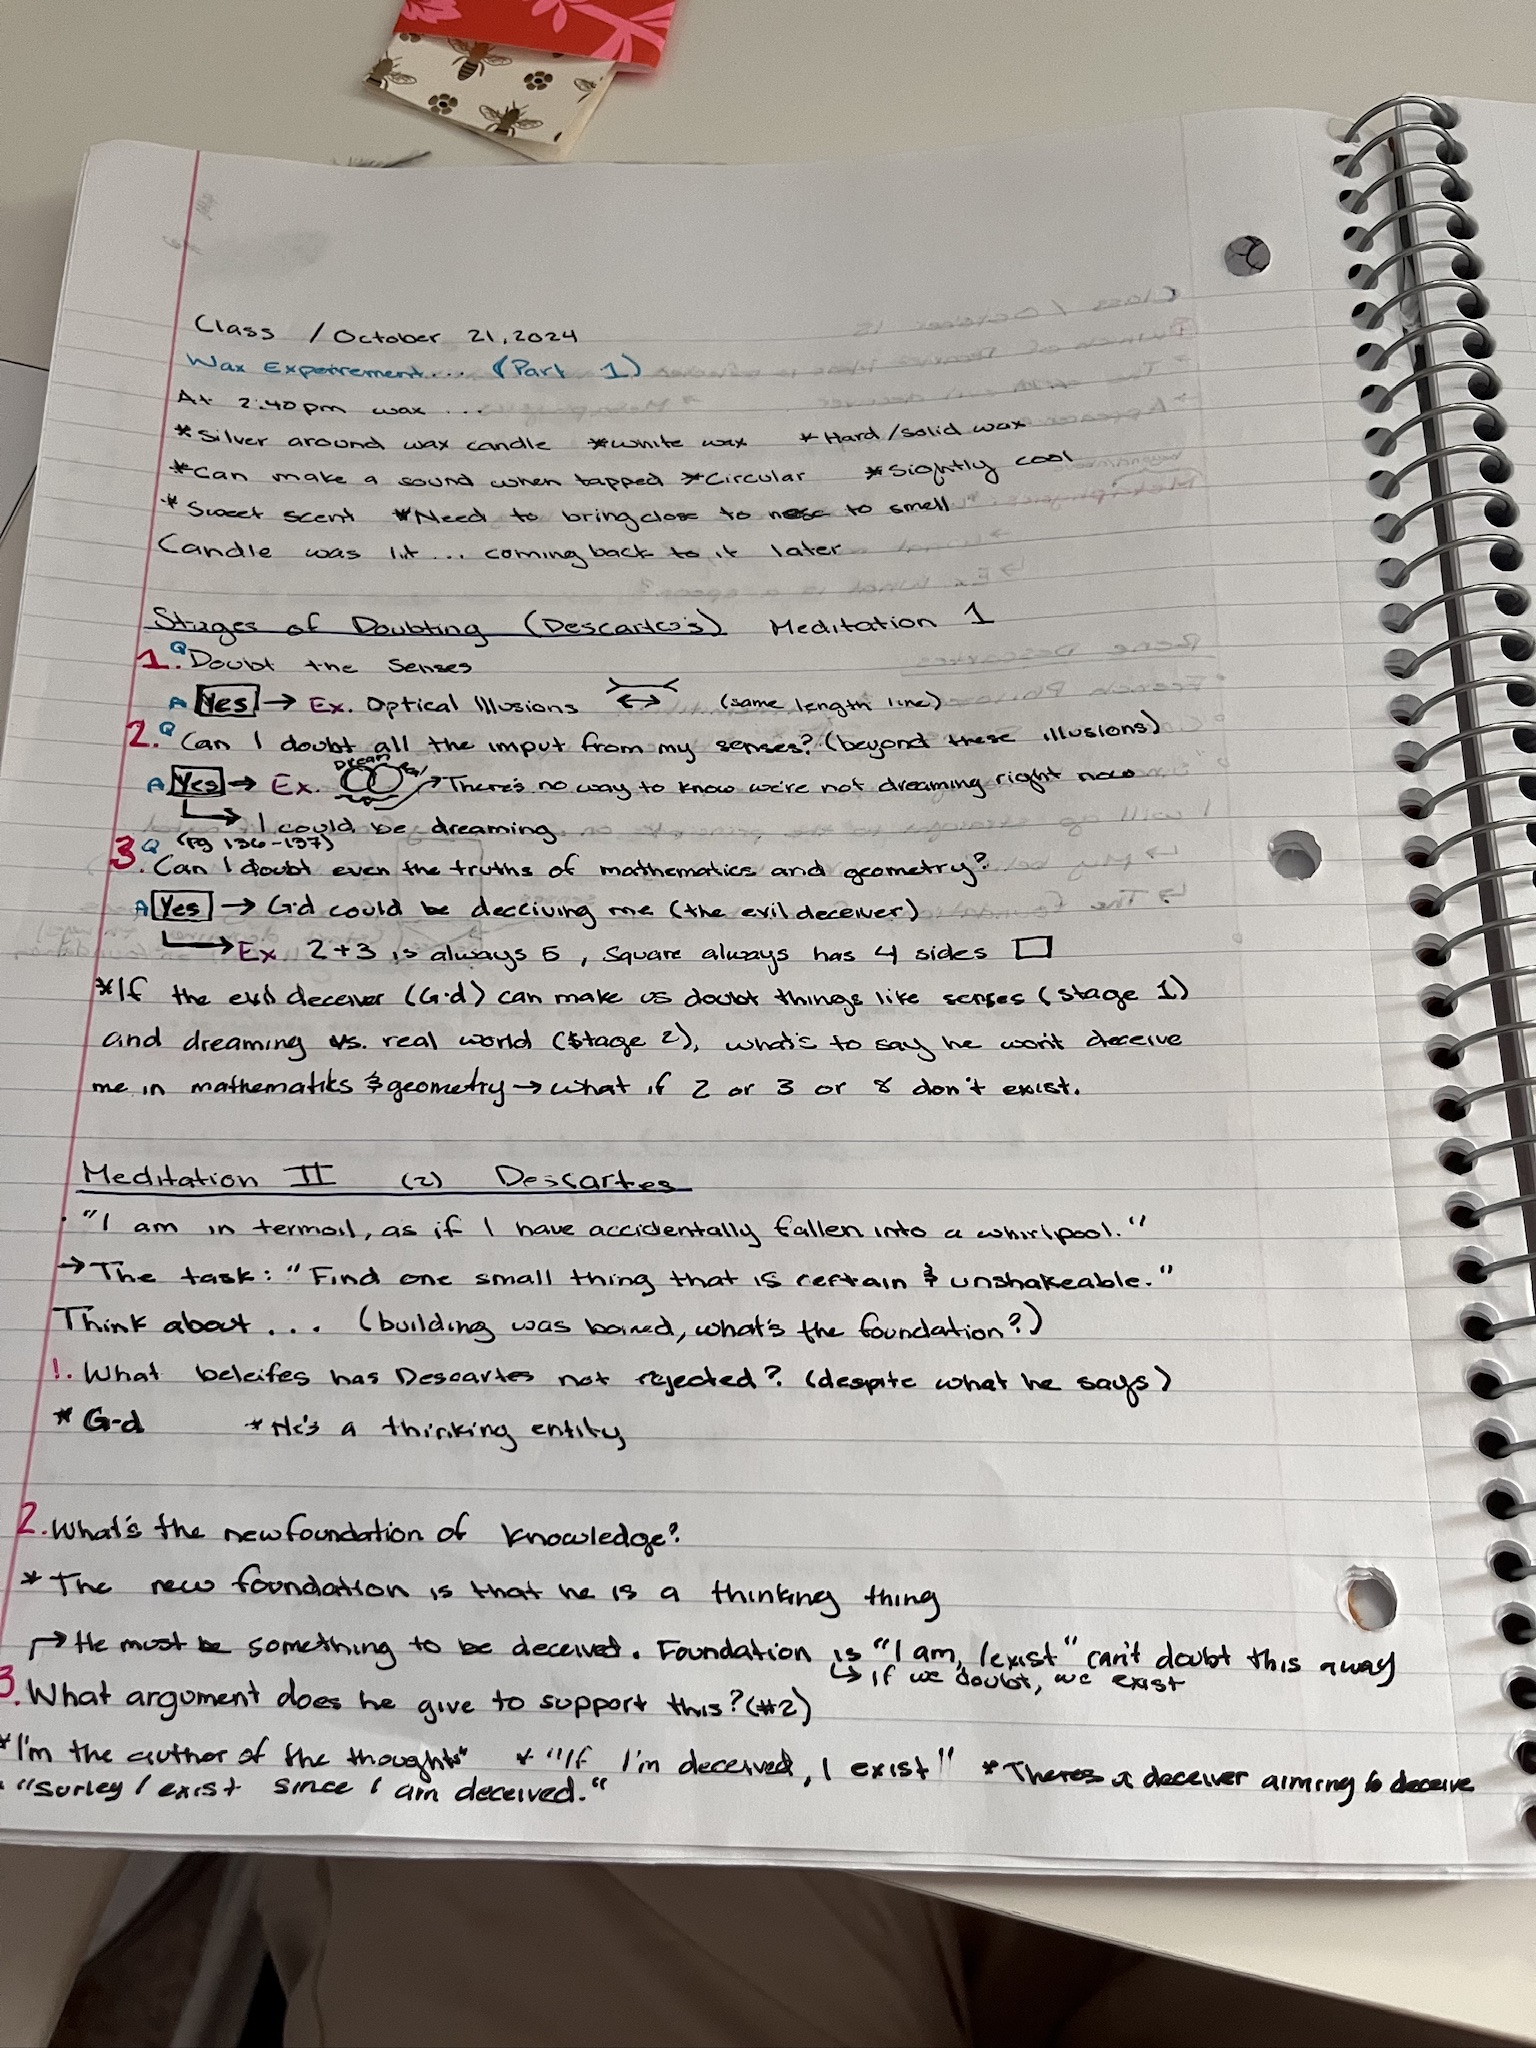 Class / October 21, 2024
Wax Experirement... (Part 1)
At 2:40pm wax ...
*Silver around wax candle *White wax *Hard/solid wax
*Can make a sound when tapped *Circular *Sightly cool
*Sweet scent *Need to bring close to nose to smell
Candle was lit... coming back to it later
Stages of Doubting (Descartes's) Meditation 1
1. Q Doubt the Senses
A Yes → Ex. Optical Illusions (same length line)
2. Q Can I doubt all the imput from my senses? (beyond these illusions)
A Yes → Ex. Dream → There's no way to know we're not dreaming right now
I could be dreaming
Q (Pg 136-137)
3. Can I doubt even the truths of mathematics and geometry?
A Yes → G-d could be decciving me (the evil deceiver)
→ Ex. 2+3 is always 5, Square always has 4 sides
*If the evil deceiver (G-d) can make us doubt things like senses (stage 1)
and dreaming vs. real world (stage 2), what's to say he won't deceive
me in mathematiks & geometry → what if 2 or 3 or 8 don't exist.
Meditation II (2) Descartes
· "I am in termoil, as if I have accidentally fallen into a whirlpool."
→ The task: "Find one small thing that is certain & unshakeable."
Think about... (building was boined, what's the foundation?)
1. What beleifes has Descartes not rejected? (despite what he says)
* G-d * He's a thinking entity
2. What's the new foundation of knowledge?
* The new foundation is that he is a thinking thing
→ He must be something to be deceived. Foundation is "I am, I exist" can't doubt this away
↳ if we doubt, we exist
3. What argument does he give to support this? (#2)
* I'm the author of the thoughts" * "If I'm deceived, I exist" * Theres a deceiver aiming to deceive
· "Surley I exist since I am deceived."